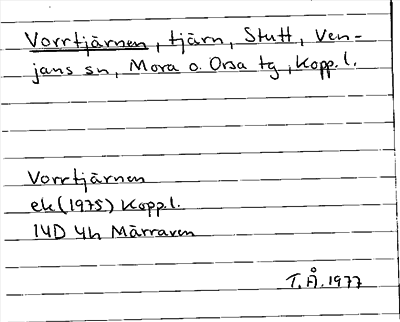 Vorrtjärnen, tjärn, Stutt, Ven-
jans sn, Mora o. Orsa tg, Kopp. l.
Vorrtjärnen
ek (1975) Kopp. l.
14D 4h Märraven
T. Å. 1977